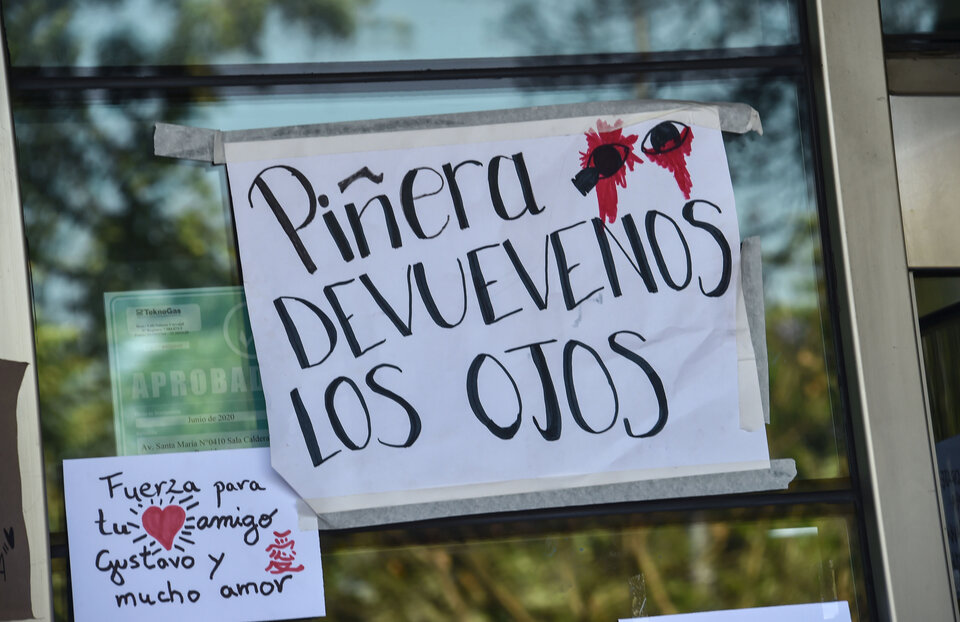 Piñera
DEVUEVENOS
LOS OJOS
TeknoGas
APROBAD
Junio de 2020
Av. Santa María Nº0410 Sala Caldera
Fuerza para
tu amigo
Gustavo y
mucho amor